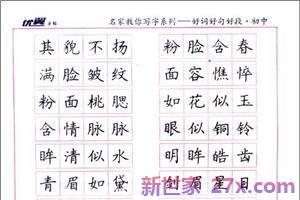 优翼 字帖
名家教你写字系列——好词好句好段·初中
其貌不扬 粉脸含春
满脸皱纹 面容憔悴
粉面桃腮 如花似玉
含情脉脉 眼似铜铃
眸清似水 明眸皓齿
青眉如黛 剑眉星目
新世家 27x.com